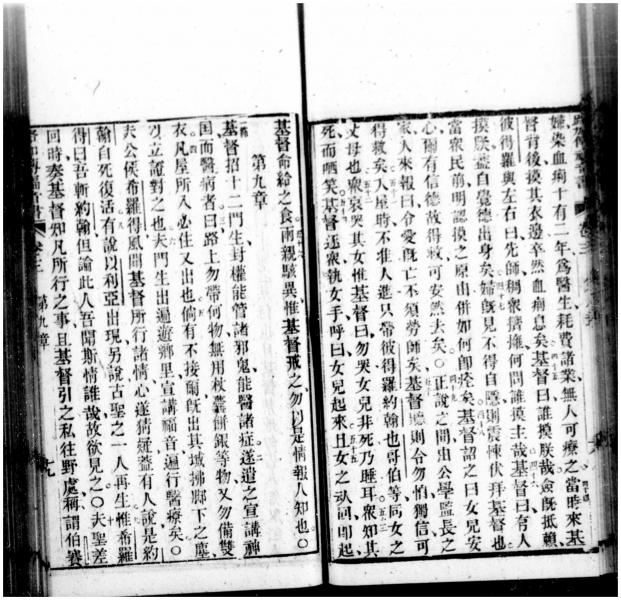 婦染血痢十有二年為醫生耗費諸業無人可療之當時來基
督背後摸其衣邊卒然血痢息矣基督曰誰摸朕哉僉既抵賴
彼得羅與左右曰先師稠衆擠擁何問誰摸主哉基督曰有人
摸朕蓋自覺德出身矣婦既見不得自隱則震悚伏拜基督也
當衆民前明認摸之原由併如何即痊矣基督詔之曰女兒安
心爾有信德故得救可安然去矣〇正說之間出公學監長之
家人來報曰令愛既亡不須勞師矣基督聽則令勿怕獨信可
得救矣入屋時不准人進只帶彼得羅約翰也哥伯等同女之
父母也衆哀哭其女惟基督曰勿哭女兒非死乃睡耳衆知其
死而哂笑基督逐衆執女手呼曰女兒起來且女之魂回即起
基督命給之食兩親駭異惟基督戒之勿以是情報人知也〇
第九章
基督招十二門生封權能管諸邪鬼能醫諸症遂遣之宣講神
国而醫病者曰路上勿帶何物無用杖囊餅銀等物又勿備雙
衣凡屋所入必住又出也倘有不接爾既出其城拂腳下之塵
以立證對之也夫門生出遍遊鄉里宣講福音遍行醫療矣〇
夫公侯希羅得風聞基督所行諸情心遂猜疑蓋有人說是約
翰自死復活有說以利亞出現另說古聖之一人再生惟希羅
得曰吾斬約翰但論此人吾聞斯情誰哉故欲見之〇夫聖差
回時奏基督知凡所行之事且基督引之私往野處稱謂伯賽
卷三 第九章 十九